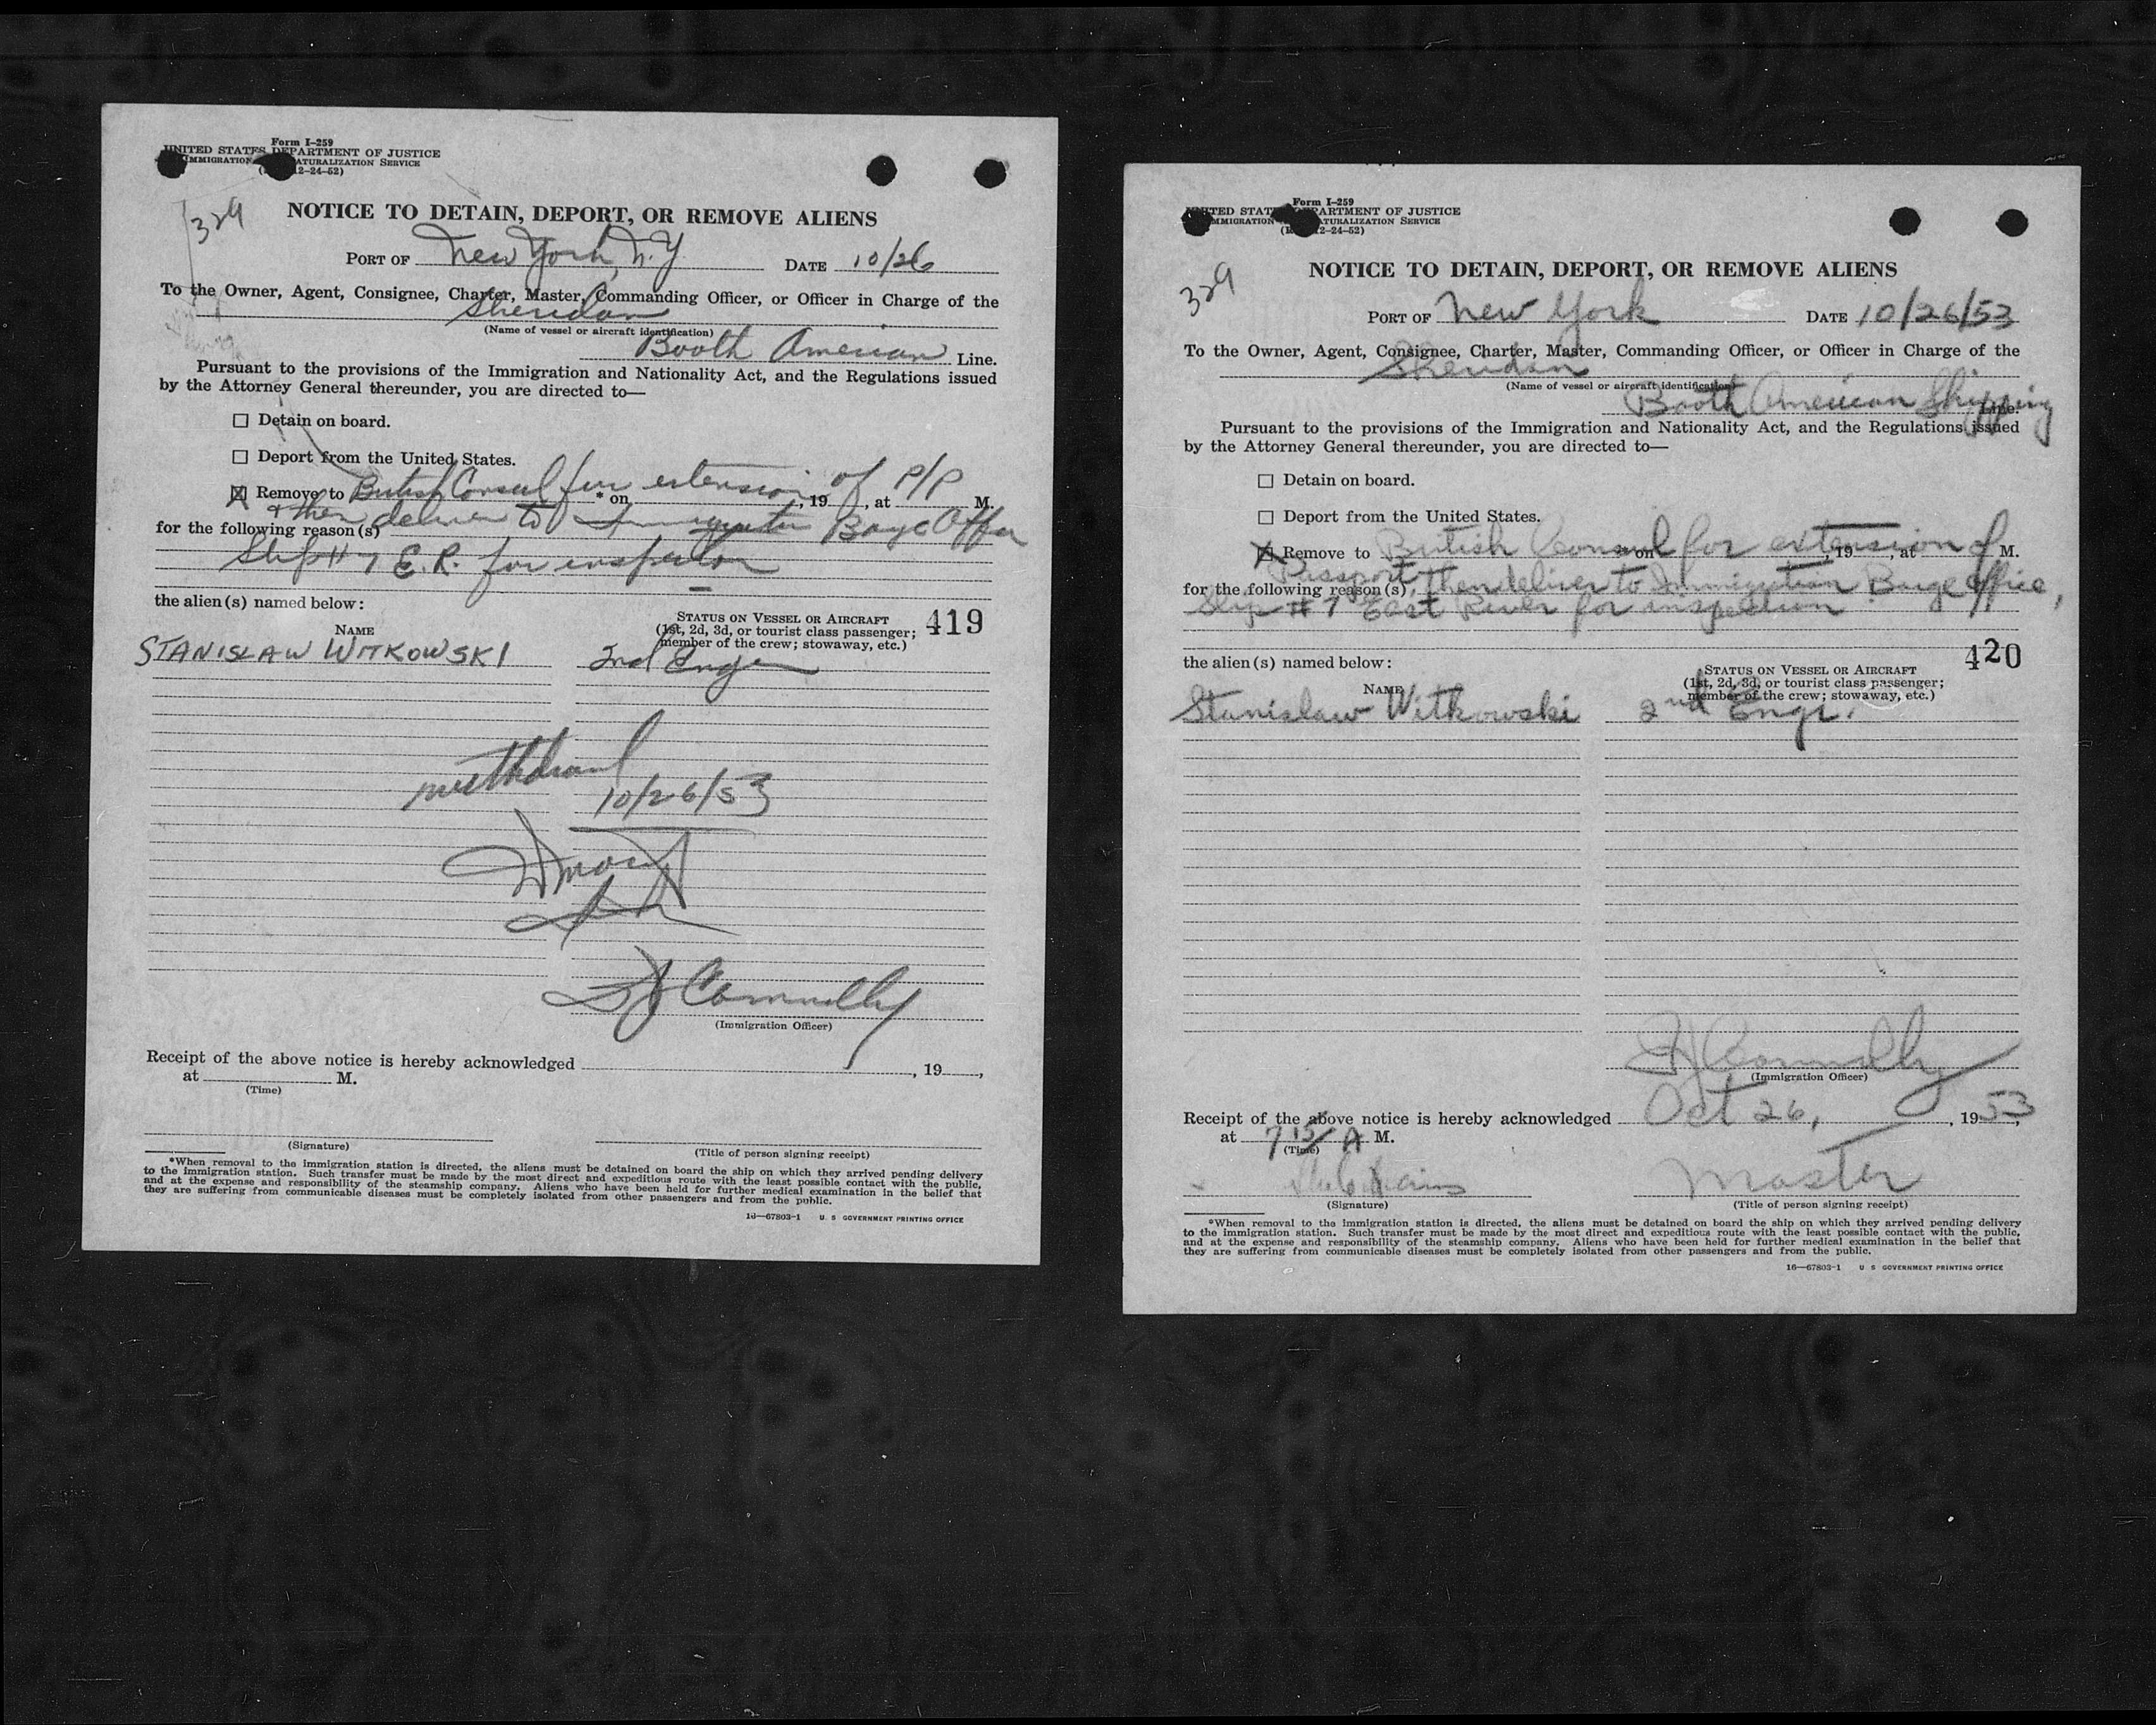 Form I-259
UNITED STATES DEPARTMENT OF JUSTICE
IMMIGRATION NATURALIZATION SERVICE
12-24-52)
329
NOTICE TO DETAIN, DEPORT, OR REMOVE ALIENS
PORT OF New York, N.Y DATE 10/26
To the Owner, Agent, Consignee, Charter, Master, Commanding Officer, or Officer in Charge of the
Sheridan
(Name of vessel or aircraft identification)
Booth American Line.
Pursuant to the provisions of the Immigration and Nationality Act, and the Regulations issued
by the Attorney General thereunder, you are directed to—
☐ Detain on board.
☐ Deport from the United States.
☒ Remove to British Consul for extension of P/P * on , 19 , at M.
& then deliver to Immigration Barge Office
for the following reason(s)
Slip # 7 E.R. for inspection
the alien(s) named below:
419
NAME
STATUS ON VESSEL OR AIRCRAFT
(1st, 2d, 3d, or tourist class passenger;
member of the crew; stowaway, etc.)
STANISLAW WITKOWSKI 2nd Engr
withdrawn
10/26/53
SJ Connolly
(Immigration Officer)
Receipt of the above notice is hereby acknowledged , 19 ,
at M.
(Time)
(Signature)
(Title of person signing receipt)
*When removal to the immigration station is directed, the aliens must be detained on board the ship on which they arrived pending delivery
to the immigration station. Such transfer must be made by the most direct and expeditious route with the least possible contact with the public,
and at the expense and responsibility of the steamship company. Aliens who have been held for further medical examination in the belief that
they are suffering from communicable diseases must be completely isolated from other passengers and from the public.
16—67803-1 U. S. GOVERNMENT PRINTING OFFICE
Form I-259
UNITED STATES DEPARTMENT OF JUSTICE
IMMIGRATION NATURALIZATION SERVICE
12-24-52)
329
NOTICE TO DETAIN, DEPORT, OR REMOVE ALIENS
PORT OF New York DATE 10/26/53
To the Owner, Agent, Consignee, Charter, Master, Commanding Officer, or Officer in Charge of the
Sheridan
(Name of vessel or aircraft identification)
Booth American Shipping Line.
Pursuant to the provisions of the Immigration and Nationality Act, and the Regulations issued
by the Attorney General thereunder, you are directed to—
☐ Detain on board.
☐ Deport from the United States.
☒ Remove to British Consul for extension of * on , 19 , at M.
Passport, then deliver to Immigration Barge Office,
for the following reason(s)
Slip # 7 East River for inspection
the alien(s) named below:
420
NAME
STATUS ON VESSEL OR AIRCRAFT
(1st, 2d, 3d, or tourist class passenger;
member of the crew; stowaway, etc.)
Stanislaw Witkowski 2nd Engr.
SJ Connolly
(Immigration Officer)
Receipt of the above notice is hereby acknowledged Oct 26, , 1953,
at 7 15/ A M.
(Time)
Master
(Signature)
(Title of person signing receipt)
*When removal to the immigration station is directed, the aliens must be detained on board the ship on which they arrived pending delivery
to the immigration station. Such transfer must be made by the most direct and expeditious route with the least possible contact with the public,
and at the expense and responsibility of the steamship company. Aliens who have been held for further medical examination in the belief that
they are suffering from communicable diseases must be completely isolated from other passengers and from the public.
16—67803-1 U S GOVERNMENT PRINTING OFFICE